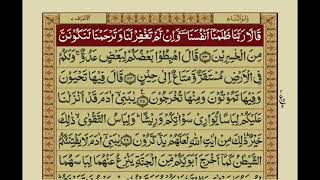 ولواننا ٨ الاعراف ٧
قَالَا رَبَّنَا ظَلَمْنَآ اَنْفُسَنَا وَاِنْ لَّمْ تَغْفِرْ لَنَا وَتَرْحَمْنَا لَنَكُوْنَنَّ
مِنَ الْخٰسِرِيْنَ ﴿٢٣﴾ قَالَ اهْبِطُوْا بَعْضُكُمْ لِبَعْضٍ عَدُوٌّ ۚ وَلَكُمْ
فِي الْاَرْضِ مُسْتَقَرٌّ وَّمَتَاعٌ اِلٰى حِيْنٍ ﴿٢٤﴾ قَالَ فِيْهَا تَحْيَوْنَ
وَفِيْهَا تَمُوْتُوْنَ وَمِنْهَا تُخْرَجُوْنَ ﴿٢٥﴾ يٰبَنِيْٓ اٰدَمَ قَدْ اَنْزَلْنَا
عَلَيْكُمْ لِبَاسًا يُّوَارِيْ سَوْاٰتِكُمْ وَرِيْشًا ۗ وَلِبَاسُ التَّقْوٰى ۙ ذٰلِكَ
خَيْرٌ ۗ ذٰلِكَ مِنْ اٰيٰتِ اللّٰهِ لَعَلَّهُمْ يَذَّكَّرُوْنَ ﴿٢٦﴾ يٰبَنِيْٓ اٰدَمَ لَا يَفْتِنَنَّكُمُ
الشَّيْطٰنُ كَمَآ اَخْرَجَ اَبَوَيْكُمْ مِّنَ الْجَنَّةِ يَنْزِعُ عَنْهُمَا لِبَاسَهُمَا